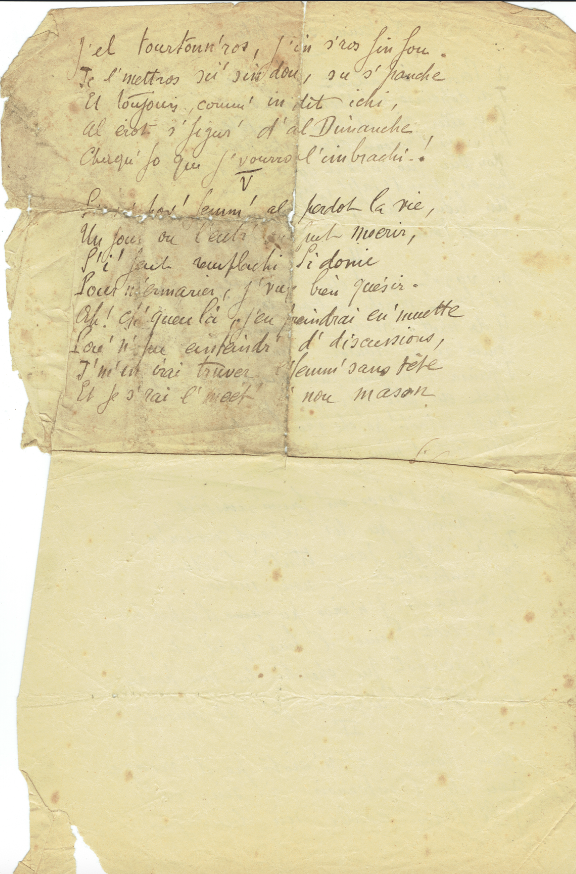 J'el tourtounn'ros, j'in s'ros fin fou.
Je l'mettros su' sin dou, su s'panche
Et toujours, comm' in dit ichi,
Al érot s'figur' d'al Dimanche
Cherqu' jo que j'vourros l'imbrachi !
V
femm' al perdot la vie,
Un jour ou l'eut' morir,
S'i' faut remplachi Sidonie
Pour m'ermarier, j'vas bien quésir.
Ah! ch'queu là, j'en preindrai en' muette
Pou' n'pu einteindr' d' discussions,
J'm'en irai truver l'femm' sans tête
Et je s'rai l'meet' d' nou mason